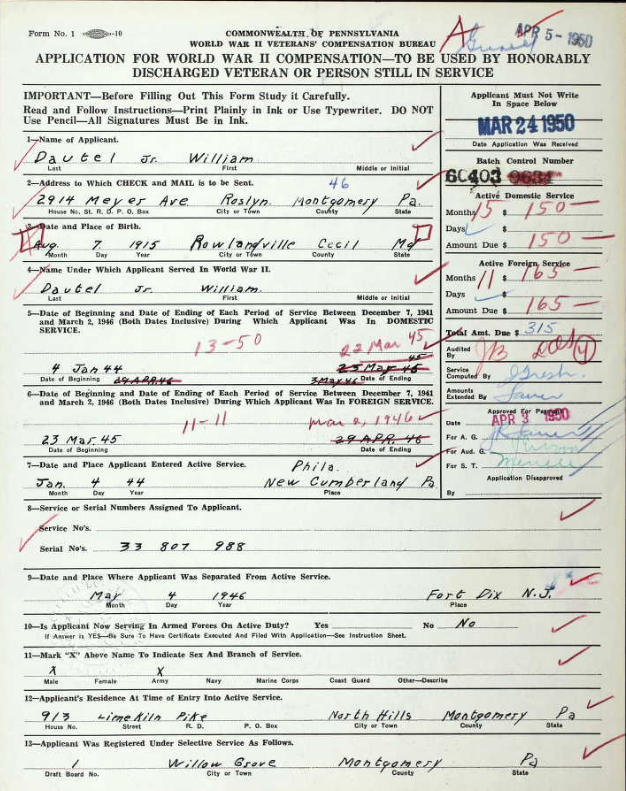 Form No. 1 -10
COMMONWEALTH OF PENNSYLVANIA
WORLD WAR II VETERANS' COMPENSATION BUREAU
APR 5 - 1950
APPLICATION FOR WORLD WAR II COMPENSATION—TO BE USED BY HONORABLY
DISCHARGED VETERAN OR PERSON STILL IN SERVICE
IMPORTANT—Before Filling Out This Form Study it Carefully.
Read and Follow Instructions—Print Plainly in Ink or Use Typewriter. DO NOT
Use Pencil—All Signatures Must Be in Ink.
Applicant Must Not Write
In Space Below
MAR 24 1950
Date Application Was Received
1—Name of Applicant.
Dautel Jr. William
Last First Middle or Initial
Batch Control Number
60403 9634
2—Address to Which CHECK and MAIL is to be Sent. 46
2914 Meyer Ave Roslyn Montgomery Pa.
House No. St. R. D. P. O. Box City or Town County State
Active Domestic Service
Months 15 $ 150—
Days $
Amount Due $ 150—
3—Date and Place of Birth.
Aug. 7 1915 Rowlandville Cecil Md
Month Day Year City or Town County State
Active Foreign Service
Months 11 $ 165—
Days $
Amount Due $ 165—
4—Name Under Which Applicant Served In World War II.
Dautel Jr. William
Last First Middle or Initial
5—Date of Beginning and Date of Ending of Each Period of Service Between December 7, 1941
and March 2, 1946 (Both Dates Inclusive) During Which Applicant Was In DOMESTIC
SERVICE.
13-50 22 Mar 45
45
4 Jan 44 23 Mar 46
Date of Beginning 29 APR. 46 3 May 46 Date of Ending
Total Amt. Due $ 315
Audited
By JB
4
Service
Computed By
Amounts
Extended By
6—Date of Beginning and Date of Ending of Each Period of Service Between December 7, 1941
and March 2, 1946 (Both Dates Inclusive) During Which Applicant Was In FOREIGN SERVICE.
11-11 Mar 2, 1946
23 Mar. 45 29 APR. 46
Date of Beginning Date of Ending
Approved For Payment
Date APR 3 1950
For A. G.
For Aud. G.
For S. T.
Application Disapproved
By
7—Date and Place Applicant Entered Active Service. Phila.
Jan. 4 44 New Cumberland Pa
Month Day Year Place
8—Service or Serial Numbers Assigned To Applicant.
Service No's.
Serial No's. 33 807 988
9—Date and Place Where Applicant Was Separated From Active Service.
May 4 1946 Fort Dix N.J.
Month Day Year Place
10—Is Applicant Now Serving In Armed Forces On Active Duty? Yes No No
If Answer is YES—Be Sure To Have Certificate Executed And Filed With Application—See Instruction Sheet.
11—Mark "X" Above Name To Indicate Sex And Branch of Service.
X X
Male Female Army Navy Marine Corps Coast Guard Other—Describe
12—Applicant's Residence At Time of Entry Into Active Service.
913 Limekiln Pike North Hills Montgomery Pa
House No. Street R. D. P. O. Box City or Town County State
13—Applicant Was Registered Under Selective Service As Follows.
1 Willow Grove Montgomery Pa
Draft Board No. City or Town County State